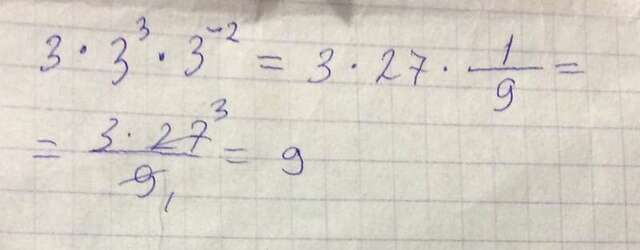 3 · 3³ · 3⁻² = 3 · 27 · 1/9 =
= 3 · 27³/9₁ = 9